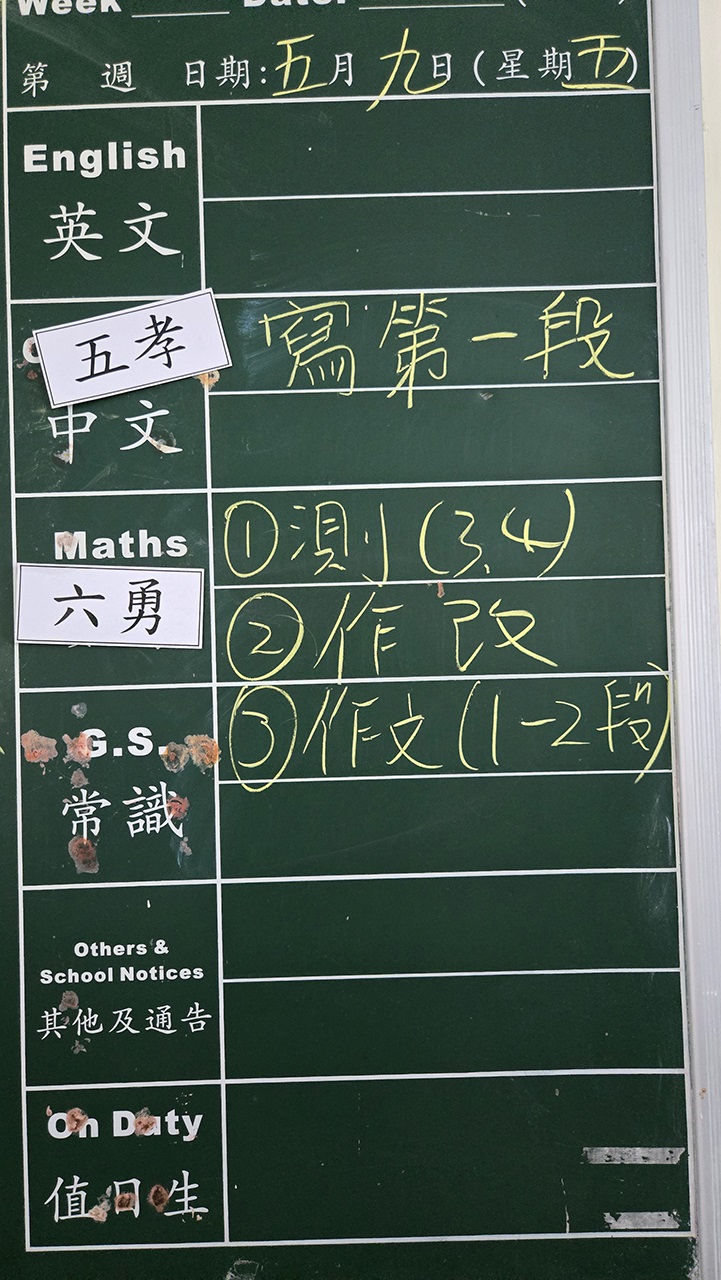 Week Date: (
第 週 日期:五月九日(星期五)
English
英文
五孝 寫第一段
中文
Maths ①測(3,4)
六勇 ②作改
G.S. ③作文(1-2段)
常識
Others &
School Notices
其他及通告
On Duty
值日生